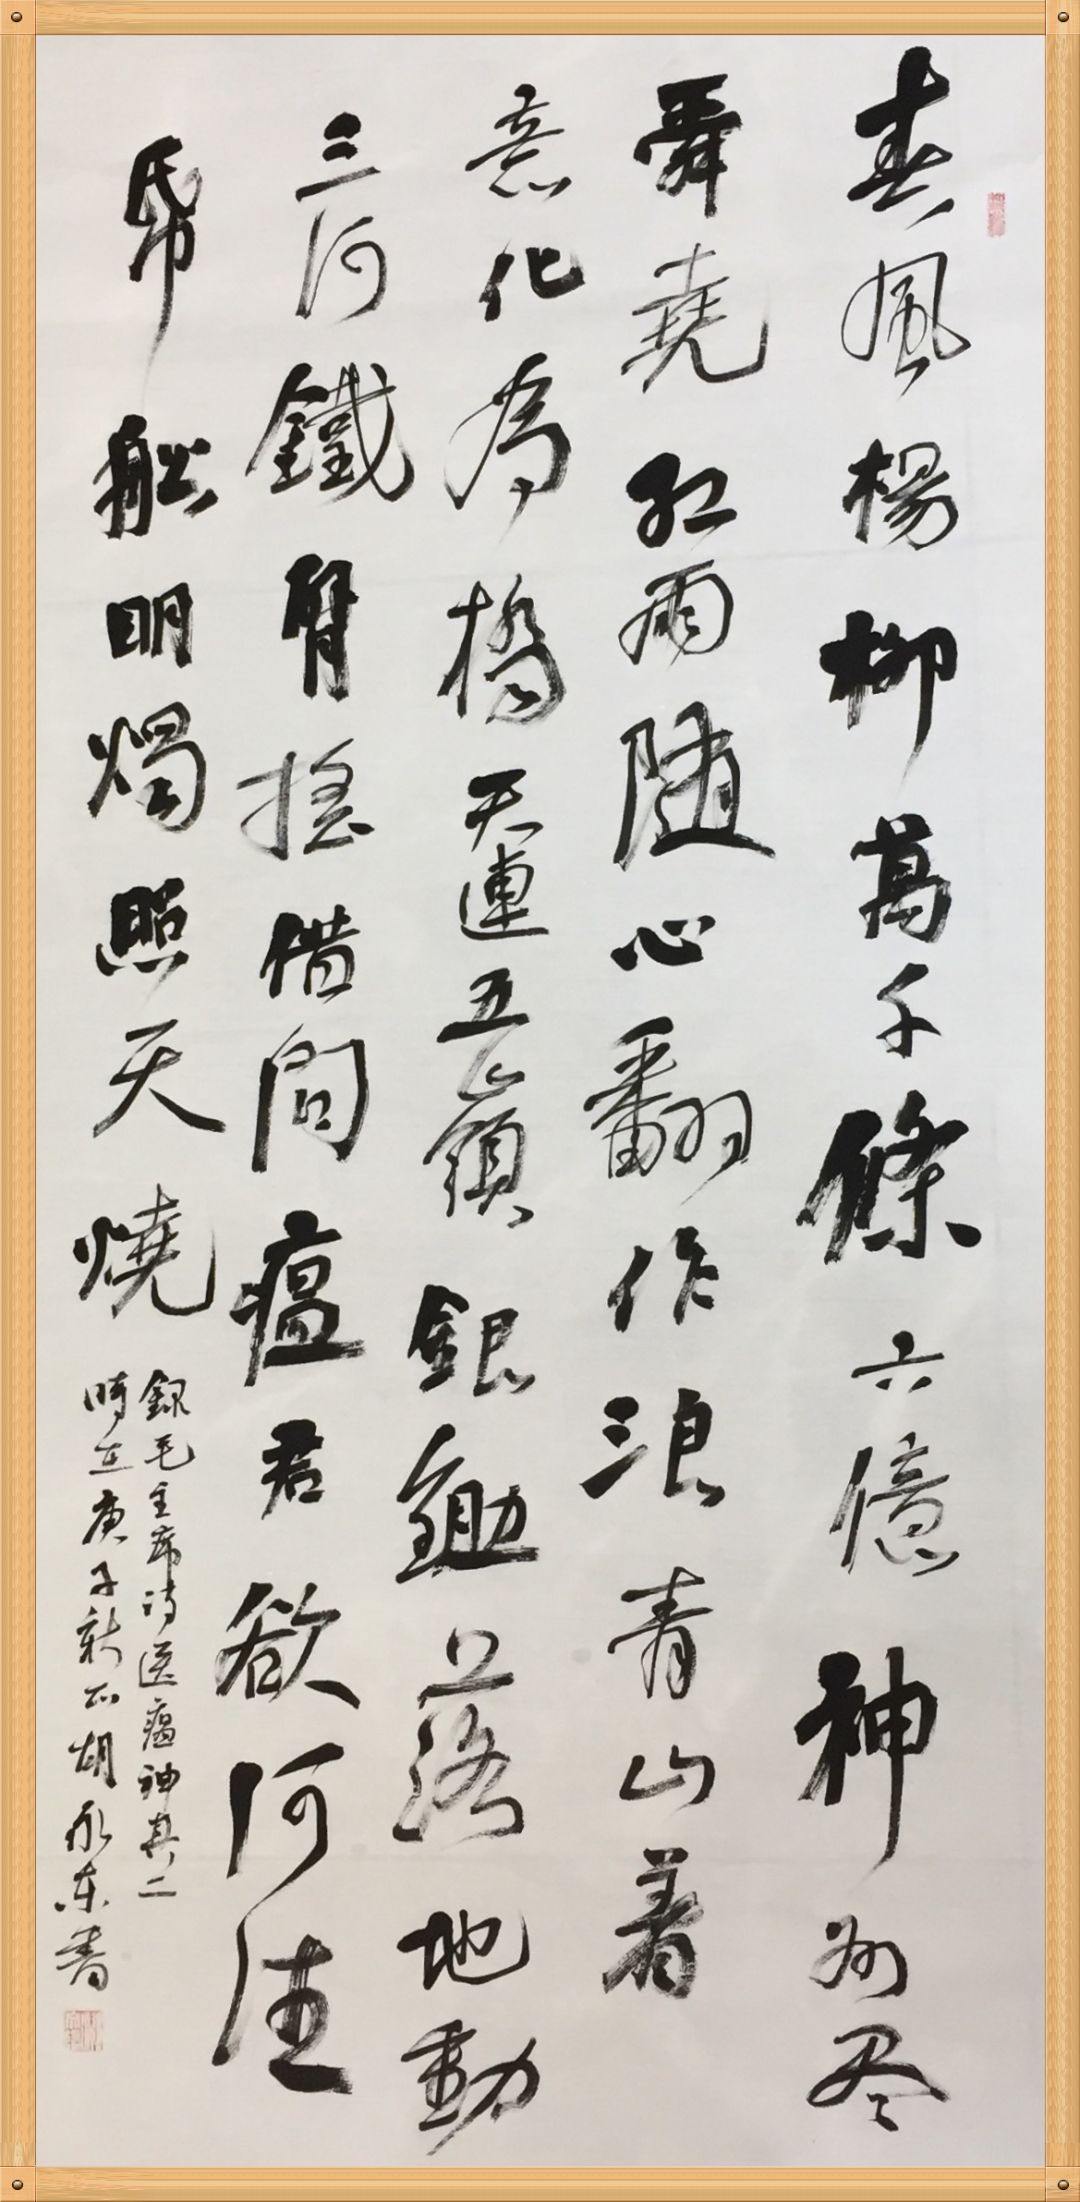 春風楊柳萬千條六億神州尽
舜堯红雨随心翻作浪青山着
意化為橋天連五嶺銀鋤落地動
三河鐵臂搖借问瘟君欲何往
帋船明燭照天燒
録毛主席诗送瘟神其二
時在庚子新正胡永东書